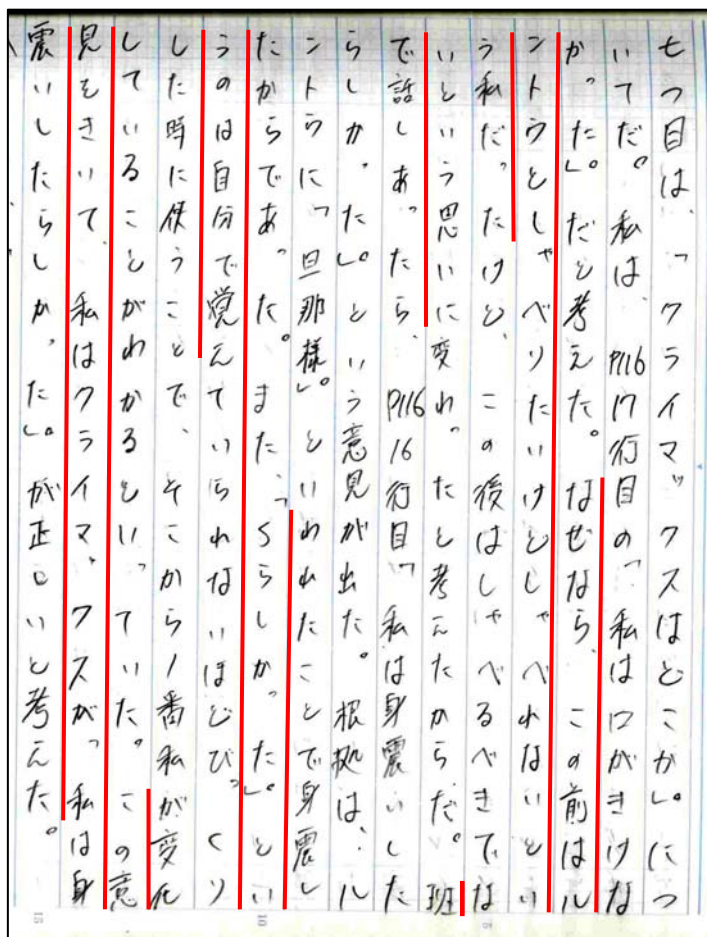 七つ目は、「クライマックスはどこか」。につ
いてだ。私は、P116 17行目の「私は口がきけな
かった」。だと考えた。なぜなら、この前はル
ントウとしゃべりたいけどしゃべれないとい
う私だったけど、この後はしゃべるべきでな
いという思いに変わったと考えたからだ。班
で話しあったら、P116 16行目「私は身震いした
らしかった」。という意見が出た。根拠は、ル
ントウに「旦那様」。といわれたことで身震し
たからであった。また、「らしかった」。とい
うのは自分で覚えていられないほどびっくり
した時に使うことで、そこから1番私が変化
していることがわかるといっていた。この意
見をきいて、私はクライマックスが「私は身
震いしたらしかった」。が正しいと考えた。
10
15